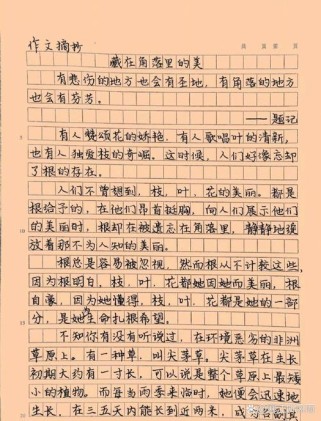 作文摘抄
藏在角落里的美
有悲伤的地方也会有圣地，有角落的地方
也会有芬芳。
——题记
有人赞颂花的娇艳，有人歌唱叶的清新，
也有人独爱枝的奇崛。这时候，人们好像忘却
了根的存在。
人们不曾想到，枝，叶，花的美丽。都是
根给予的，在他们昂首挺胸，向人们展示他们
的美丽时，根却在被遗忘在角落里，静静地绽
放着那不为人知的美丽。
根总是容易被忽视，然而根从不计较这些，
因为根明白，枝，叶，花都她因她而美丽，根
自豪，因为她懂得，枝，叶，花都是她的一部
分，是她生命扎根希望。
不知你有没有听说过，在环境恶劣的非洲
草原上。有一种草，叫尖茅草，尖茅草在生长
初期大约有一寸长，可以说是整个草原上最矮
小的植物。而每当雨季来临时，她便会迅速地
生长，在三五天内能长到近两米，成为